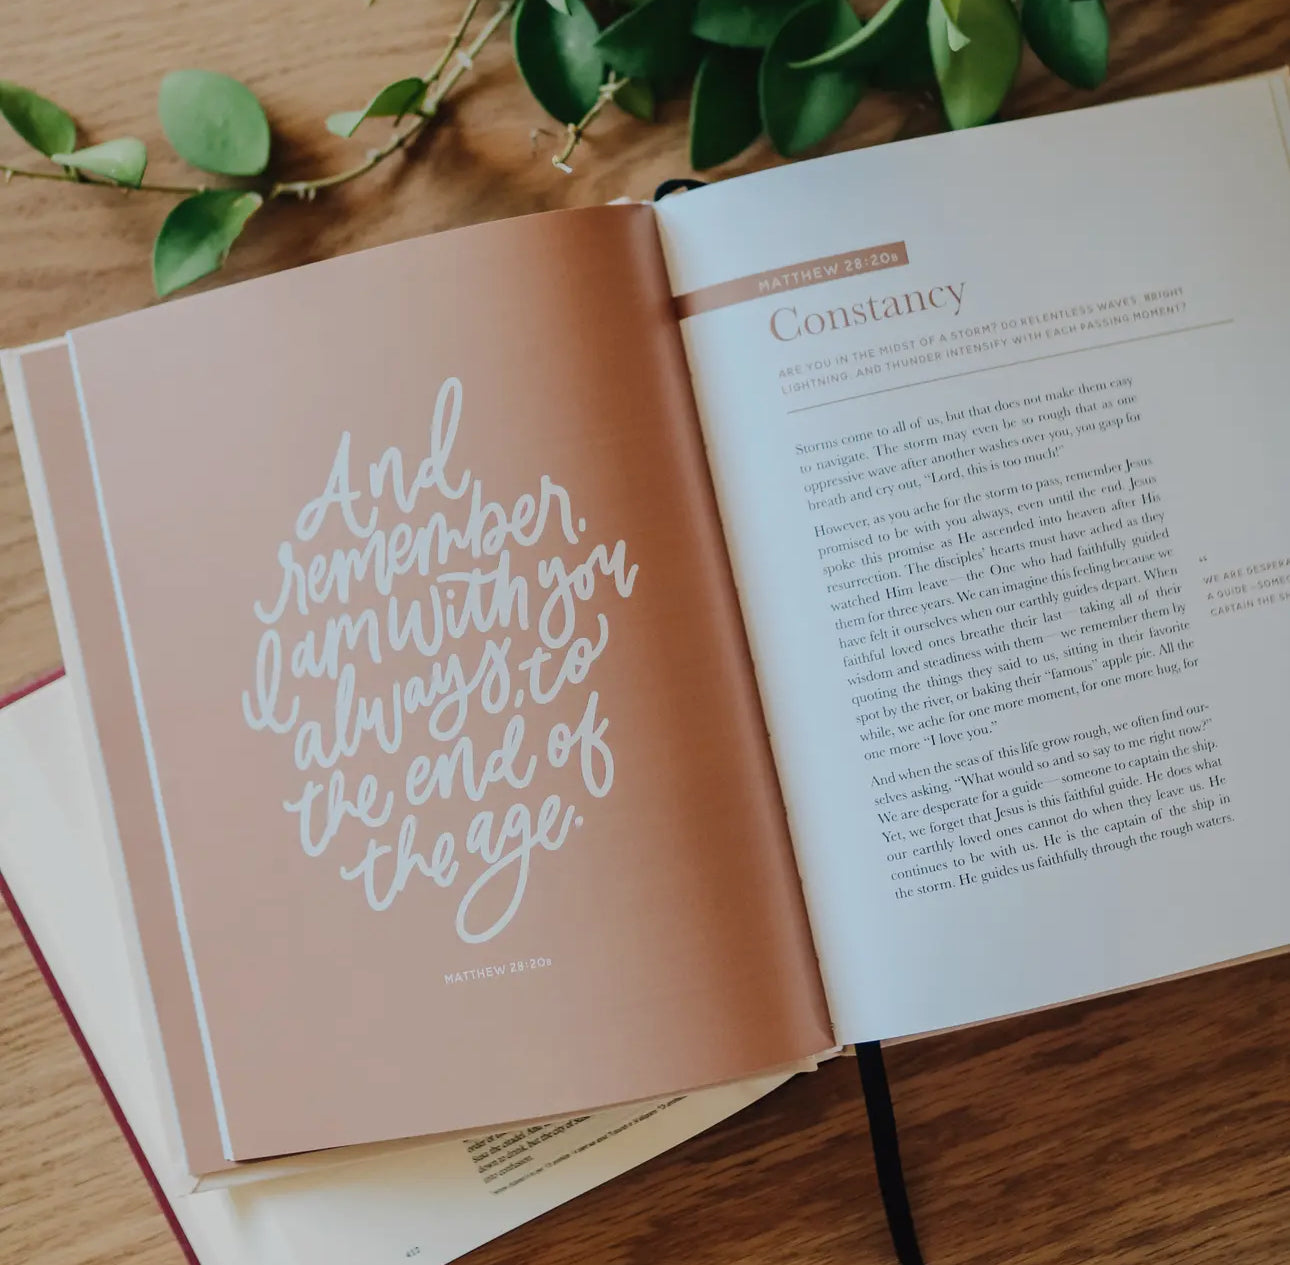 And
remember,
I am with you
always, to
the end of
the age.
MATTHEW 28:20B
MATTHEW 28:20B
Constancy
ARE YOU IN THE MIDST OF A STORM? DO RELENTLESS WAVES, BRIGHT
LIGHTNING, AND THUNDER INTENSIFY WITH EACH PASSING MOMENT?
Storms come to all of us, but that does not make them easy
to navigate. The storm may even be so rough that as one
oppressive wave after another washes over you, you gasp for
breath and cry out, “Lord, this is too much!”
However, as you ache for the storm to pass, remember Jesus
promised to be with you always, even until the end. Jesus
spoke this promise as He ascended into heaven after His
resurrection. The disciples’ hearts must have ached as they
watched Him leave—the One who had faithfully guided
them for three years. We can imagine this feeling because we
have felt it ourselves when our earthly guides depart. When
faithful loved ones breathe their last—taking all of their
wisdom and steadiness with them—we remember them by
quoting the things they said to us, sitting in their favorite
spot by the river, or baking their “famous” apple pie. All the
while, we ache for one more moment, for one more hug, for
one more “I love you.”
And when the seas of this life grow rough, we often find our-
selves asking, “What would so and so say to me right now?”
We are desperate for a guide—someone to captain the ship.
Yet, we forget that Jesus is this faithful guide. He does what
our earthly loved ones cannot do when they leave us. He
continues to be with us. He is the captain of the ship in
the storm. He guides us faithfully through the rough waters.
“
WE ARE DESPERA
A GUIDE—SOMEO
CAPTAIN THE SH
down to drink, but the city of
into confusion.
412